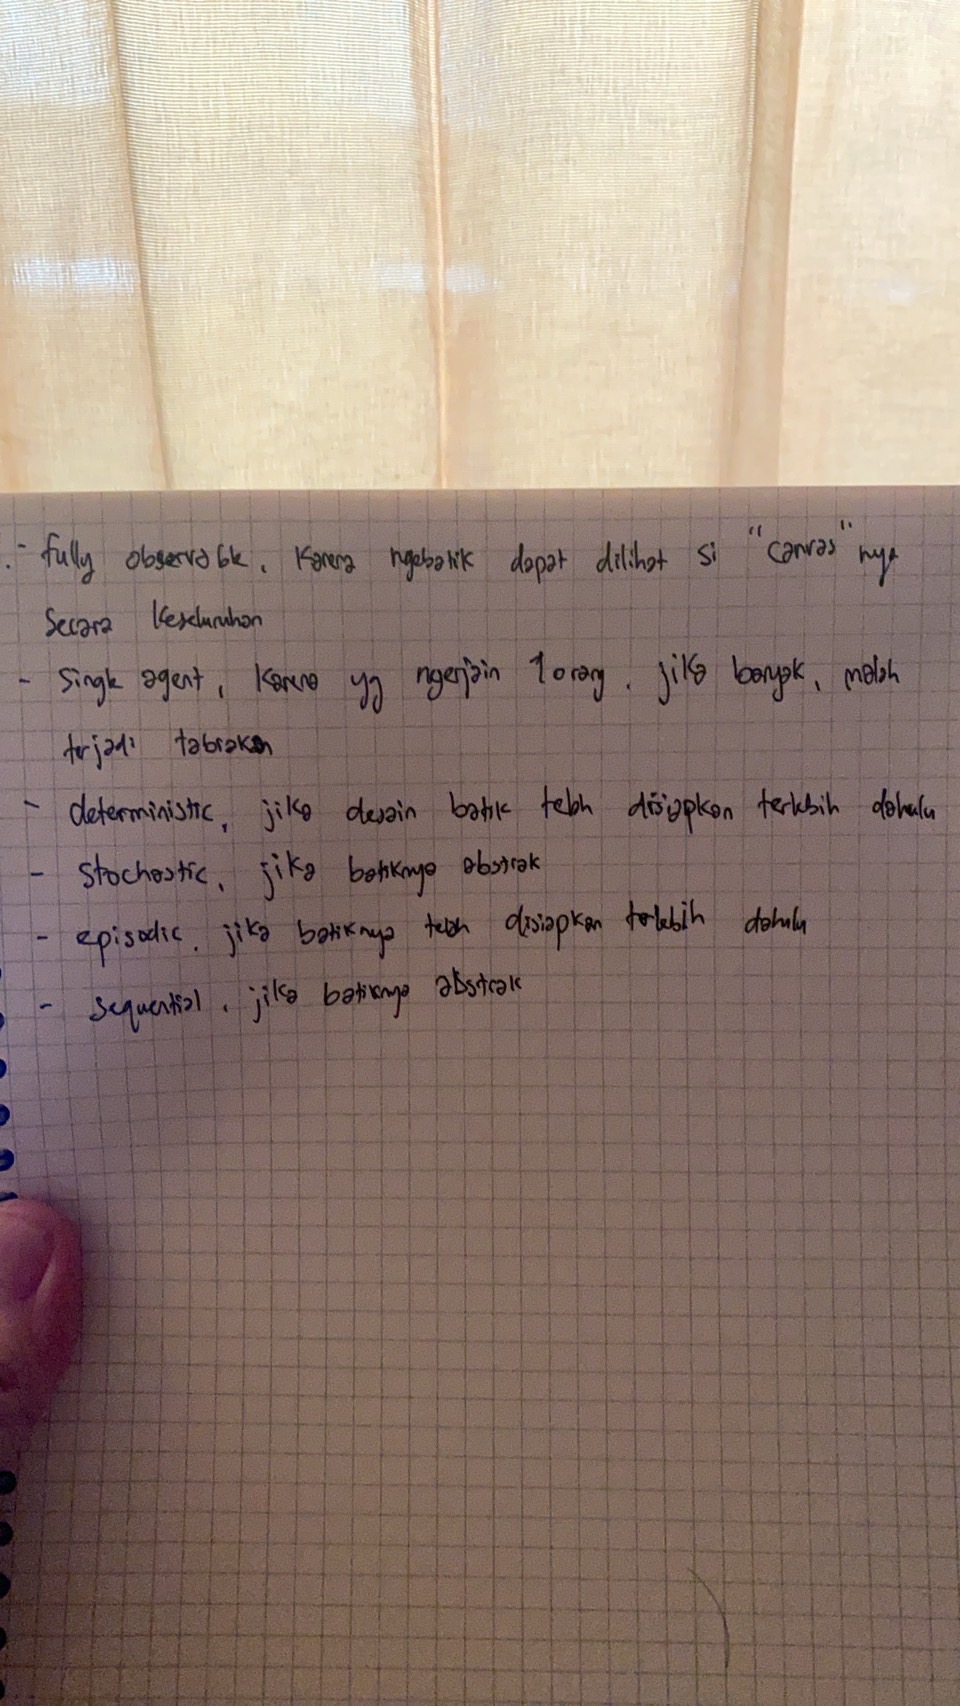 - fully observable, karena ngebatik dapat dilihat si "canvas" nya
secara keseluruhan
- single agent, karena yg ngerjain 1 orang. jika banyak, malah
terjadi tabrakan
- deterministic, jika desain batik telah disiapkan terlebih dahulu
- stochastic, jika batiknya abstrak
- episodic, jika batiknya telah disiapkan terlebih dahulu
- sequential, jika batiknya abstrak